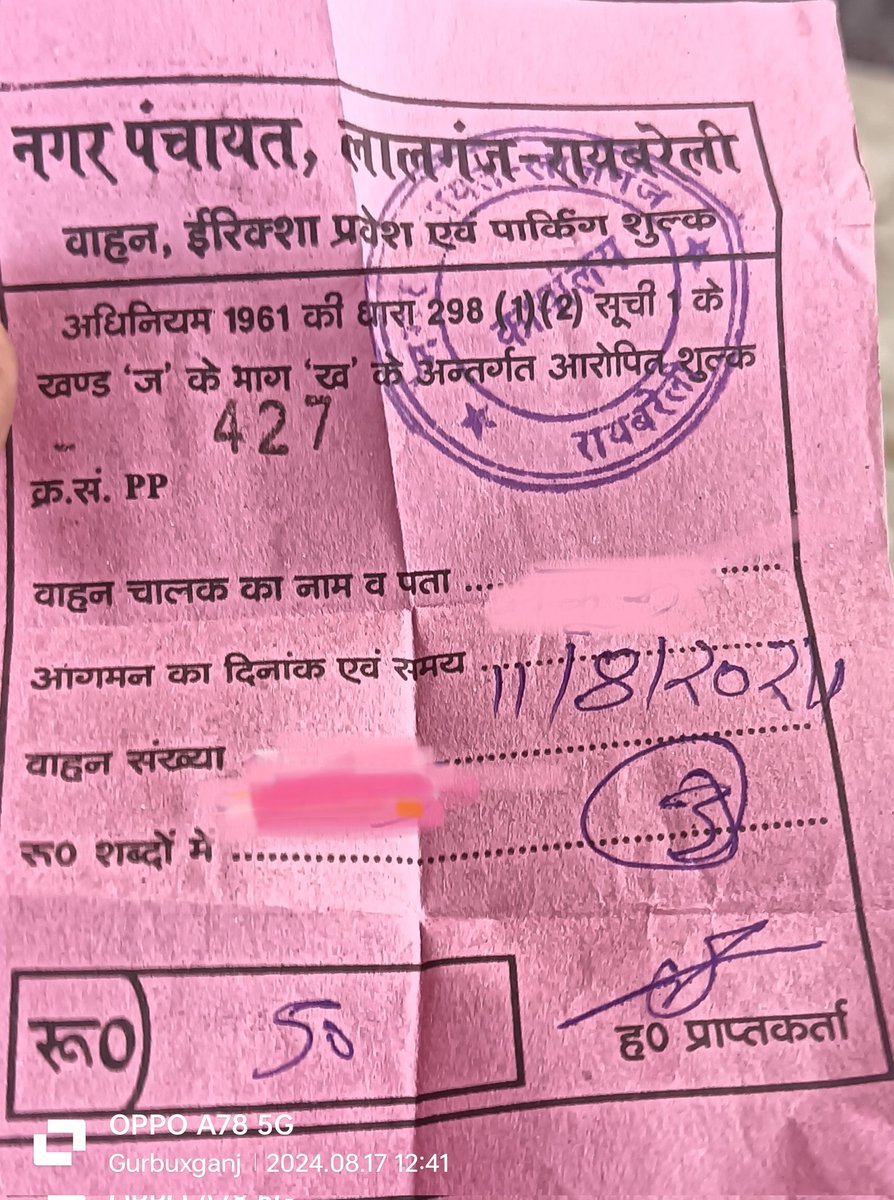 नगर पंचायत, लालगंज-रायबरेली
वाहन, ईरिक्शा प्रवेश एवं पार्किंग शुल्क
अधिनियम 1961 की धारा 298 (1)(2) सूची 1 के
खण्ड 'ज' के भाग 'ख' के अन्तर्गत आरोपित शुल्क
427
क्र.सं. PP
रायबरेली
वाहन चालक का नाम व पता
आगमन का दिनांक एवं समय 11/8/2024
वाहन संख्या
रू0 शब्दों मे
रू0 50
ह0 प्राप्तकर्ता
OPPO A78 5G
Gurbuxganj | 2024.08.17 12:41